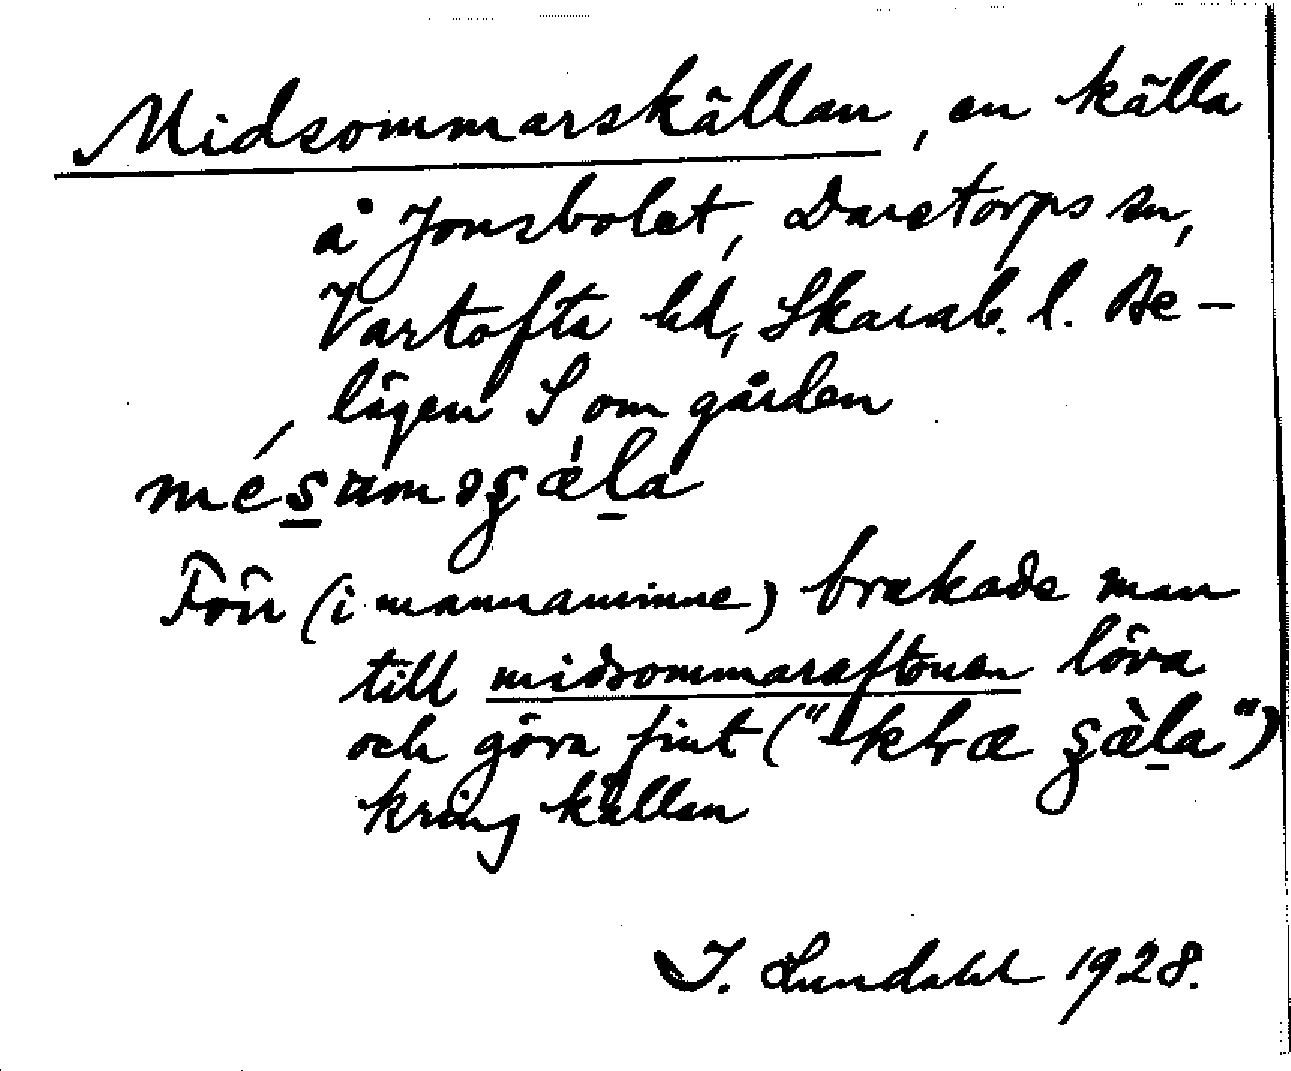 Midsommarskällan, en källa
å Jonsbolet, Daretorps sn,
Vartofta hd, Skarab. l. Be-
lägen S om gården
Förr (i mannaminne) brukade man
till midsommaraftonen löva
och göra fint ("
kring källan
I. Lundahl 1928.